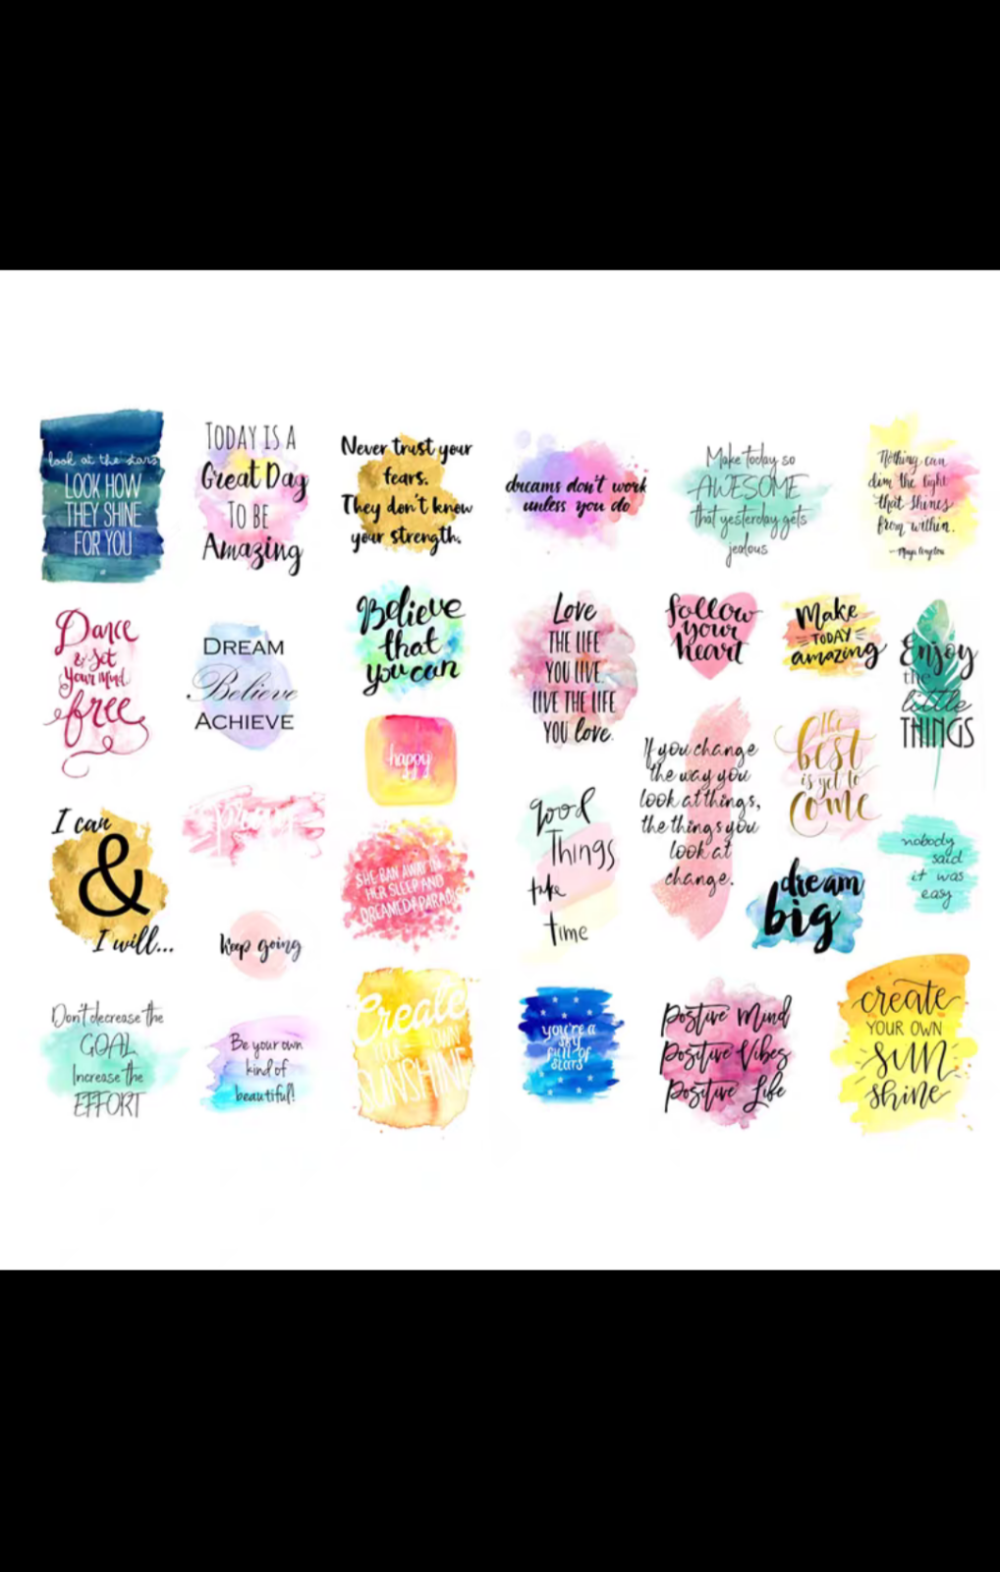 look at the stars
LOOK HOW
THEY SHINE
FOR YOU
TODAY IS A
Great Day
TO BE
Amazing
Never trust your
fears.
They don't know
your strength.
dreams don't work
unless you do
Make today so
AWESOME
that yesterday gets
jealous
Nothing can
dim the light
that shines
from within.
- Maya Angelou
Dance
& Set
Your Mind
free
DREAM
Believe
ACHIEVE
Believe
that
you can
happy
Love
THE LIFE
YOU LIVE.
LIVE THE LIFE
YOU love.
follow
your
heart
Make
TODAY
amazing
Enjoy
the
little
THINGS
I can
&
I will...
Keep going
SHE RAN AWAY IN
HER SLEEP AND
DREAMED PARADISE
good
Things
take
time
If you change
the way you
look at things,
the things you
look at
change.
the
best
is yet to
come
dream
big
nobody
said
it was
easy
Don't decrease the
GOAL
Increase the
EFFORT
Be your own
kind of
beautiful!
Create
YOUR OWN
SUNSHINE
you're a
sky
full of
stars
Positive Mind
Positive Vibes
Positive Life
create
YOUR OWN
SUN
shine